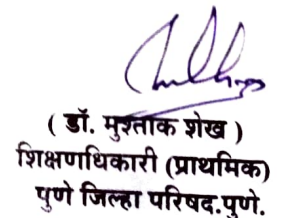 ( डॉ. मुश्ताक शेख )
शिक्षणधिकारी (प्राथमिक)
पुणे जिल्हा परिषद.पुणे.